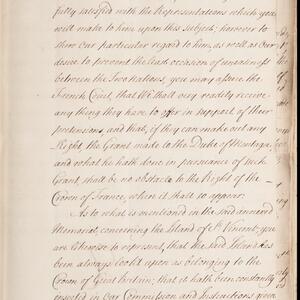 fully satisfied with the Representations which you
will make to him upon this subject; however to
shew Our particular regard to him, as well as Our
desire to prevent the least occasion of uneasiness
between the Two Nations, you may assure the
French Court, that We shall very readily receive
any thing they have to offer in support of their
pretensions, and that, if they can make out any
Right the Grant made to the Duke of Montagu,
and what he hath done in pursuance of such
Grant, shall be no obstacle to the Right of the
Crown of France, when it shall so appear.
As to what is mentioned in the said
Memorial, concerning the Island of St. Vincent, you
are likewise to represent, that the said Island has
been always look'd upon as belonging to the
Crown of Great Britain; that it hath been constantly
inserted in Our Commission and Instructions